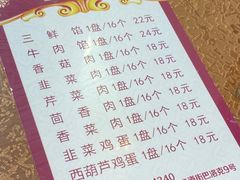 三鲜馅1盘/16个 22元
牛肉馅1盘/16个 24元
香菇肉1盘/16个 18元
韭菜肉1盘/16个 18元
芹菜肉1盘/16个 18元
茴香肉1盘/16个 18元
香菜肉1盘/16个 18元
韭菜鸡蛋1盘/16个 18元
西葫芦鸡蛋1盘/16个 18元
4240
街巴洛克